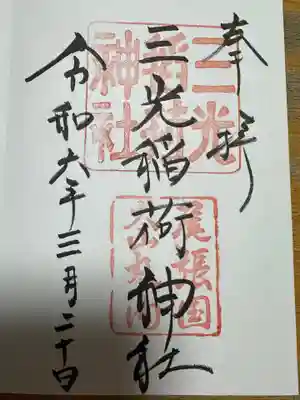 奉拝
三光稲荷神社
令和六年三月二十日
三光
稲荷
神社
尾張国
犬山